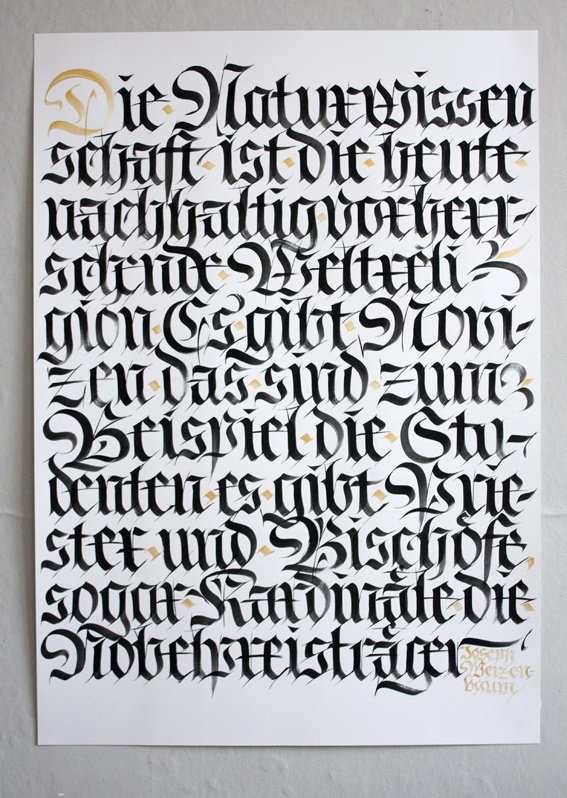 Die · Naturwissen
schaft · ist · die · heute ·
nachhaltig · vorherr-
schende · Weltreli
gion · Es · gibt · Novi-
zen · das sind · zum
Beispiel · die · Stu-
denten · es · gibt · Prie-
ster · und · Bischöfe,
sogar · Kardinäle · die ·
Nobelpreisträger
Joseph
Weizen-
baum